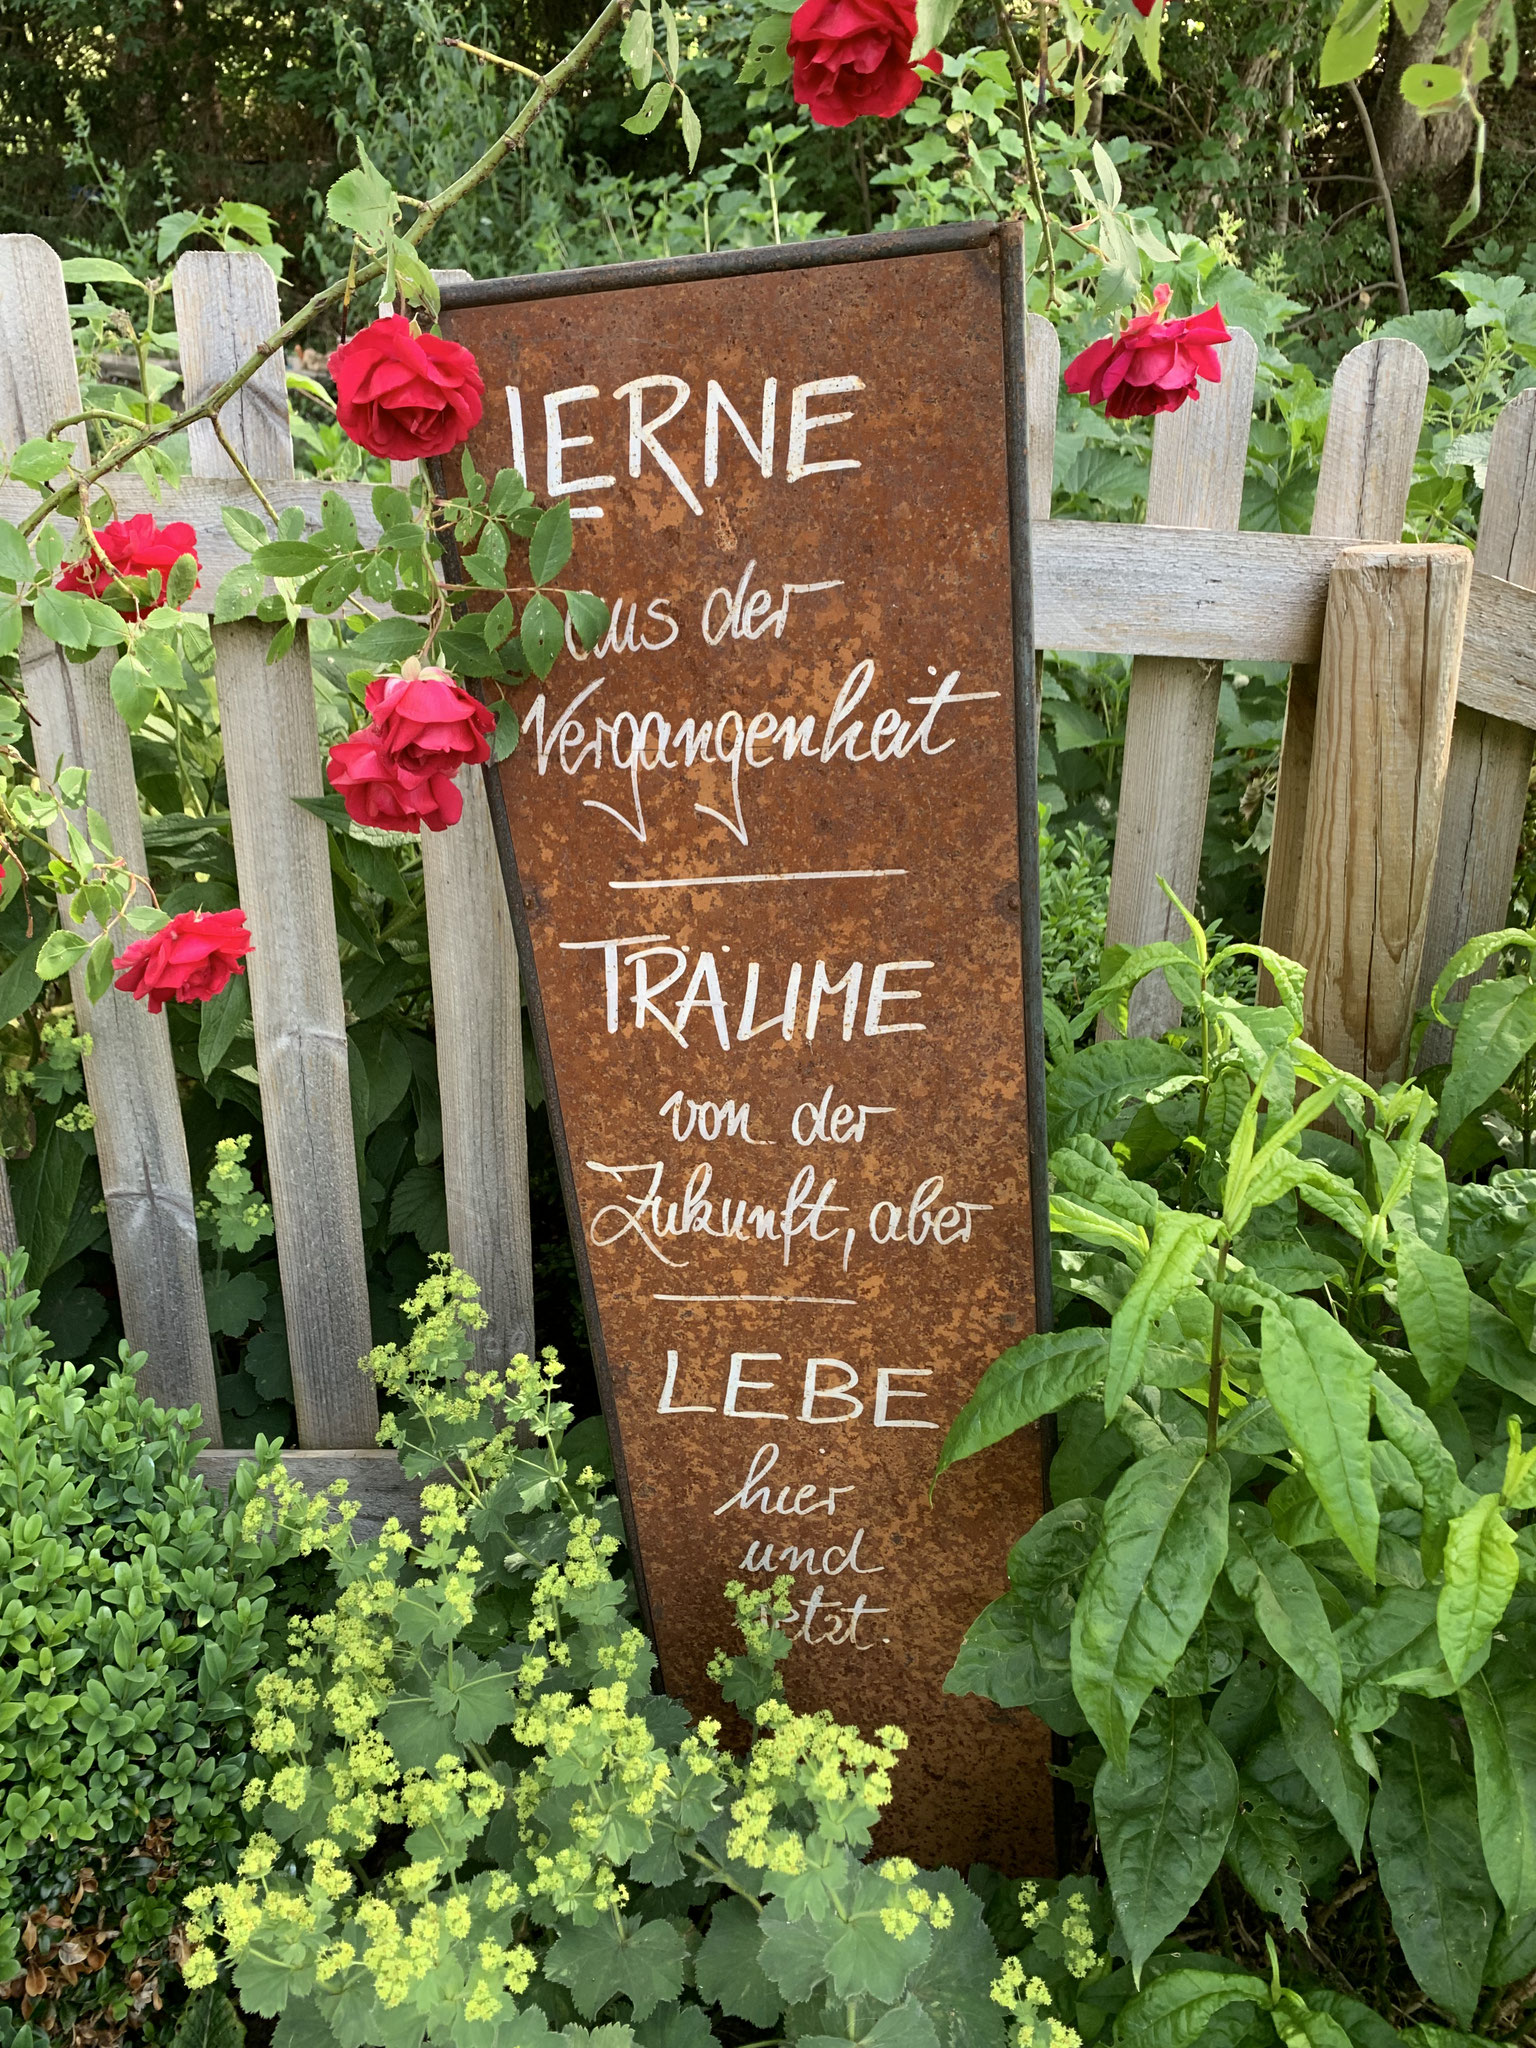 LERNE
aus der
Vergangenheit
TRÄUME
von der
Zukunft, aber
LEBE
hier
und
jetzt.